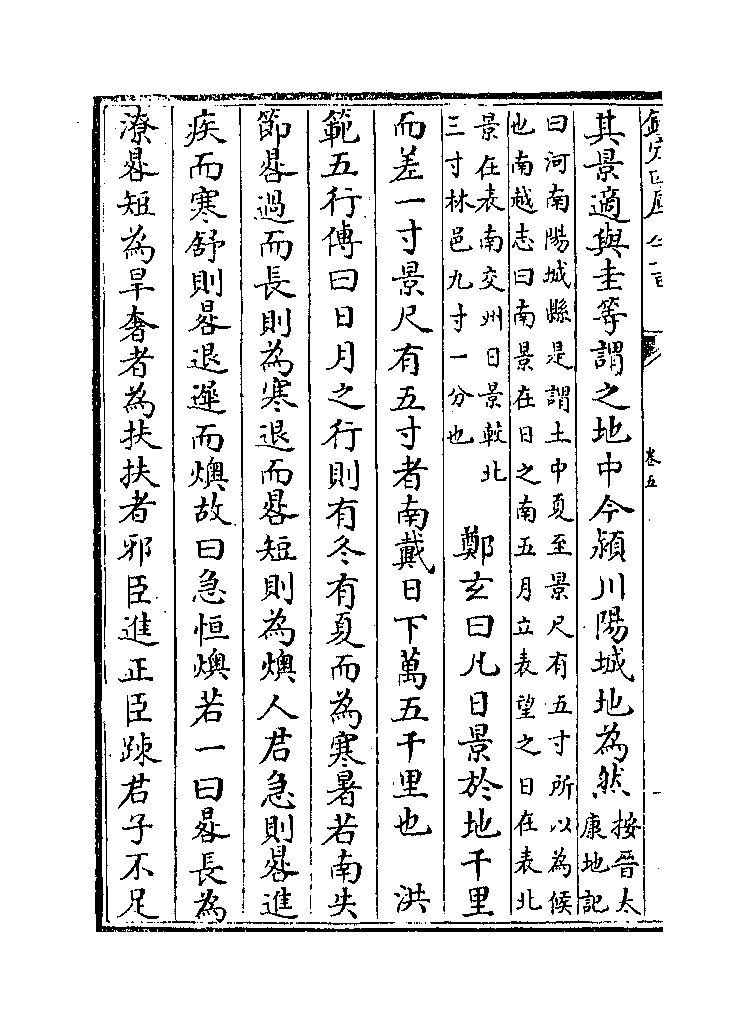 卷五
其景適與圭等謂之地中今潁川陽城地為然
按晉太
康地記
曰河南陽城縣是謂土中夏至景尺有五寸所以為候
也南越志曰南景在日之南五月立表望之日在表北
景在表南交州日景較北
三寸林邑九寸一分也
鄭玄曰凡日景於地千里
而差一寸景尺有五寸者南戴日下萬五千里也　洪
範五行傳曰日月之行則有冬有夏而為寒暑若南失
節晷過而長則為寒退而晷短則為燠人君急則晷進
疾而寒舒則晷退遲而燠故曰急恒燠若一曰晷長為
潦晷短為旱奢者為扶扶者邪臣進正臣疎君子不足